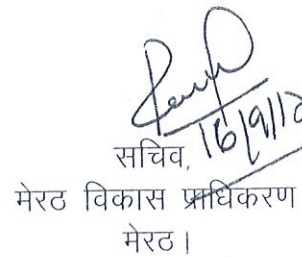 सचिव,
मेरठ विकास प्राधिकरण
मेरठ।